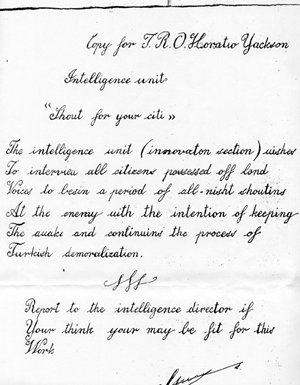 Copy for T.R.O. Horatio Yackson
Intelligence unit
"Shout for your citi »
The intelligence unit (innovaton section) wishes
To interview all citizens possessed off lond
Voices to besin a period of all-nisht shoutins
At the enemy with the intention of keeping
The auake and continuins the process of
Turkish demoralization.
Report to the intelligence director if
Your think your may be fit for this
Work